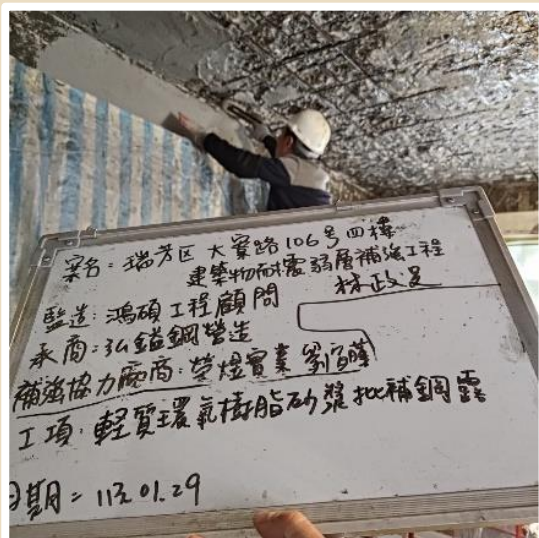 案名:瑞芳区大寶路106号四樓
建築物耐震弱層補強工程
監造:鴻碩工程顧問
林政文
承商:弘鎰鋼營造
補強協力廠商:榮煜實業
工項:軽質環氧樹脂砂漿批補鋼露
日期=113.01.29